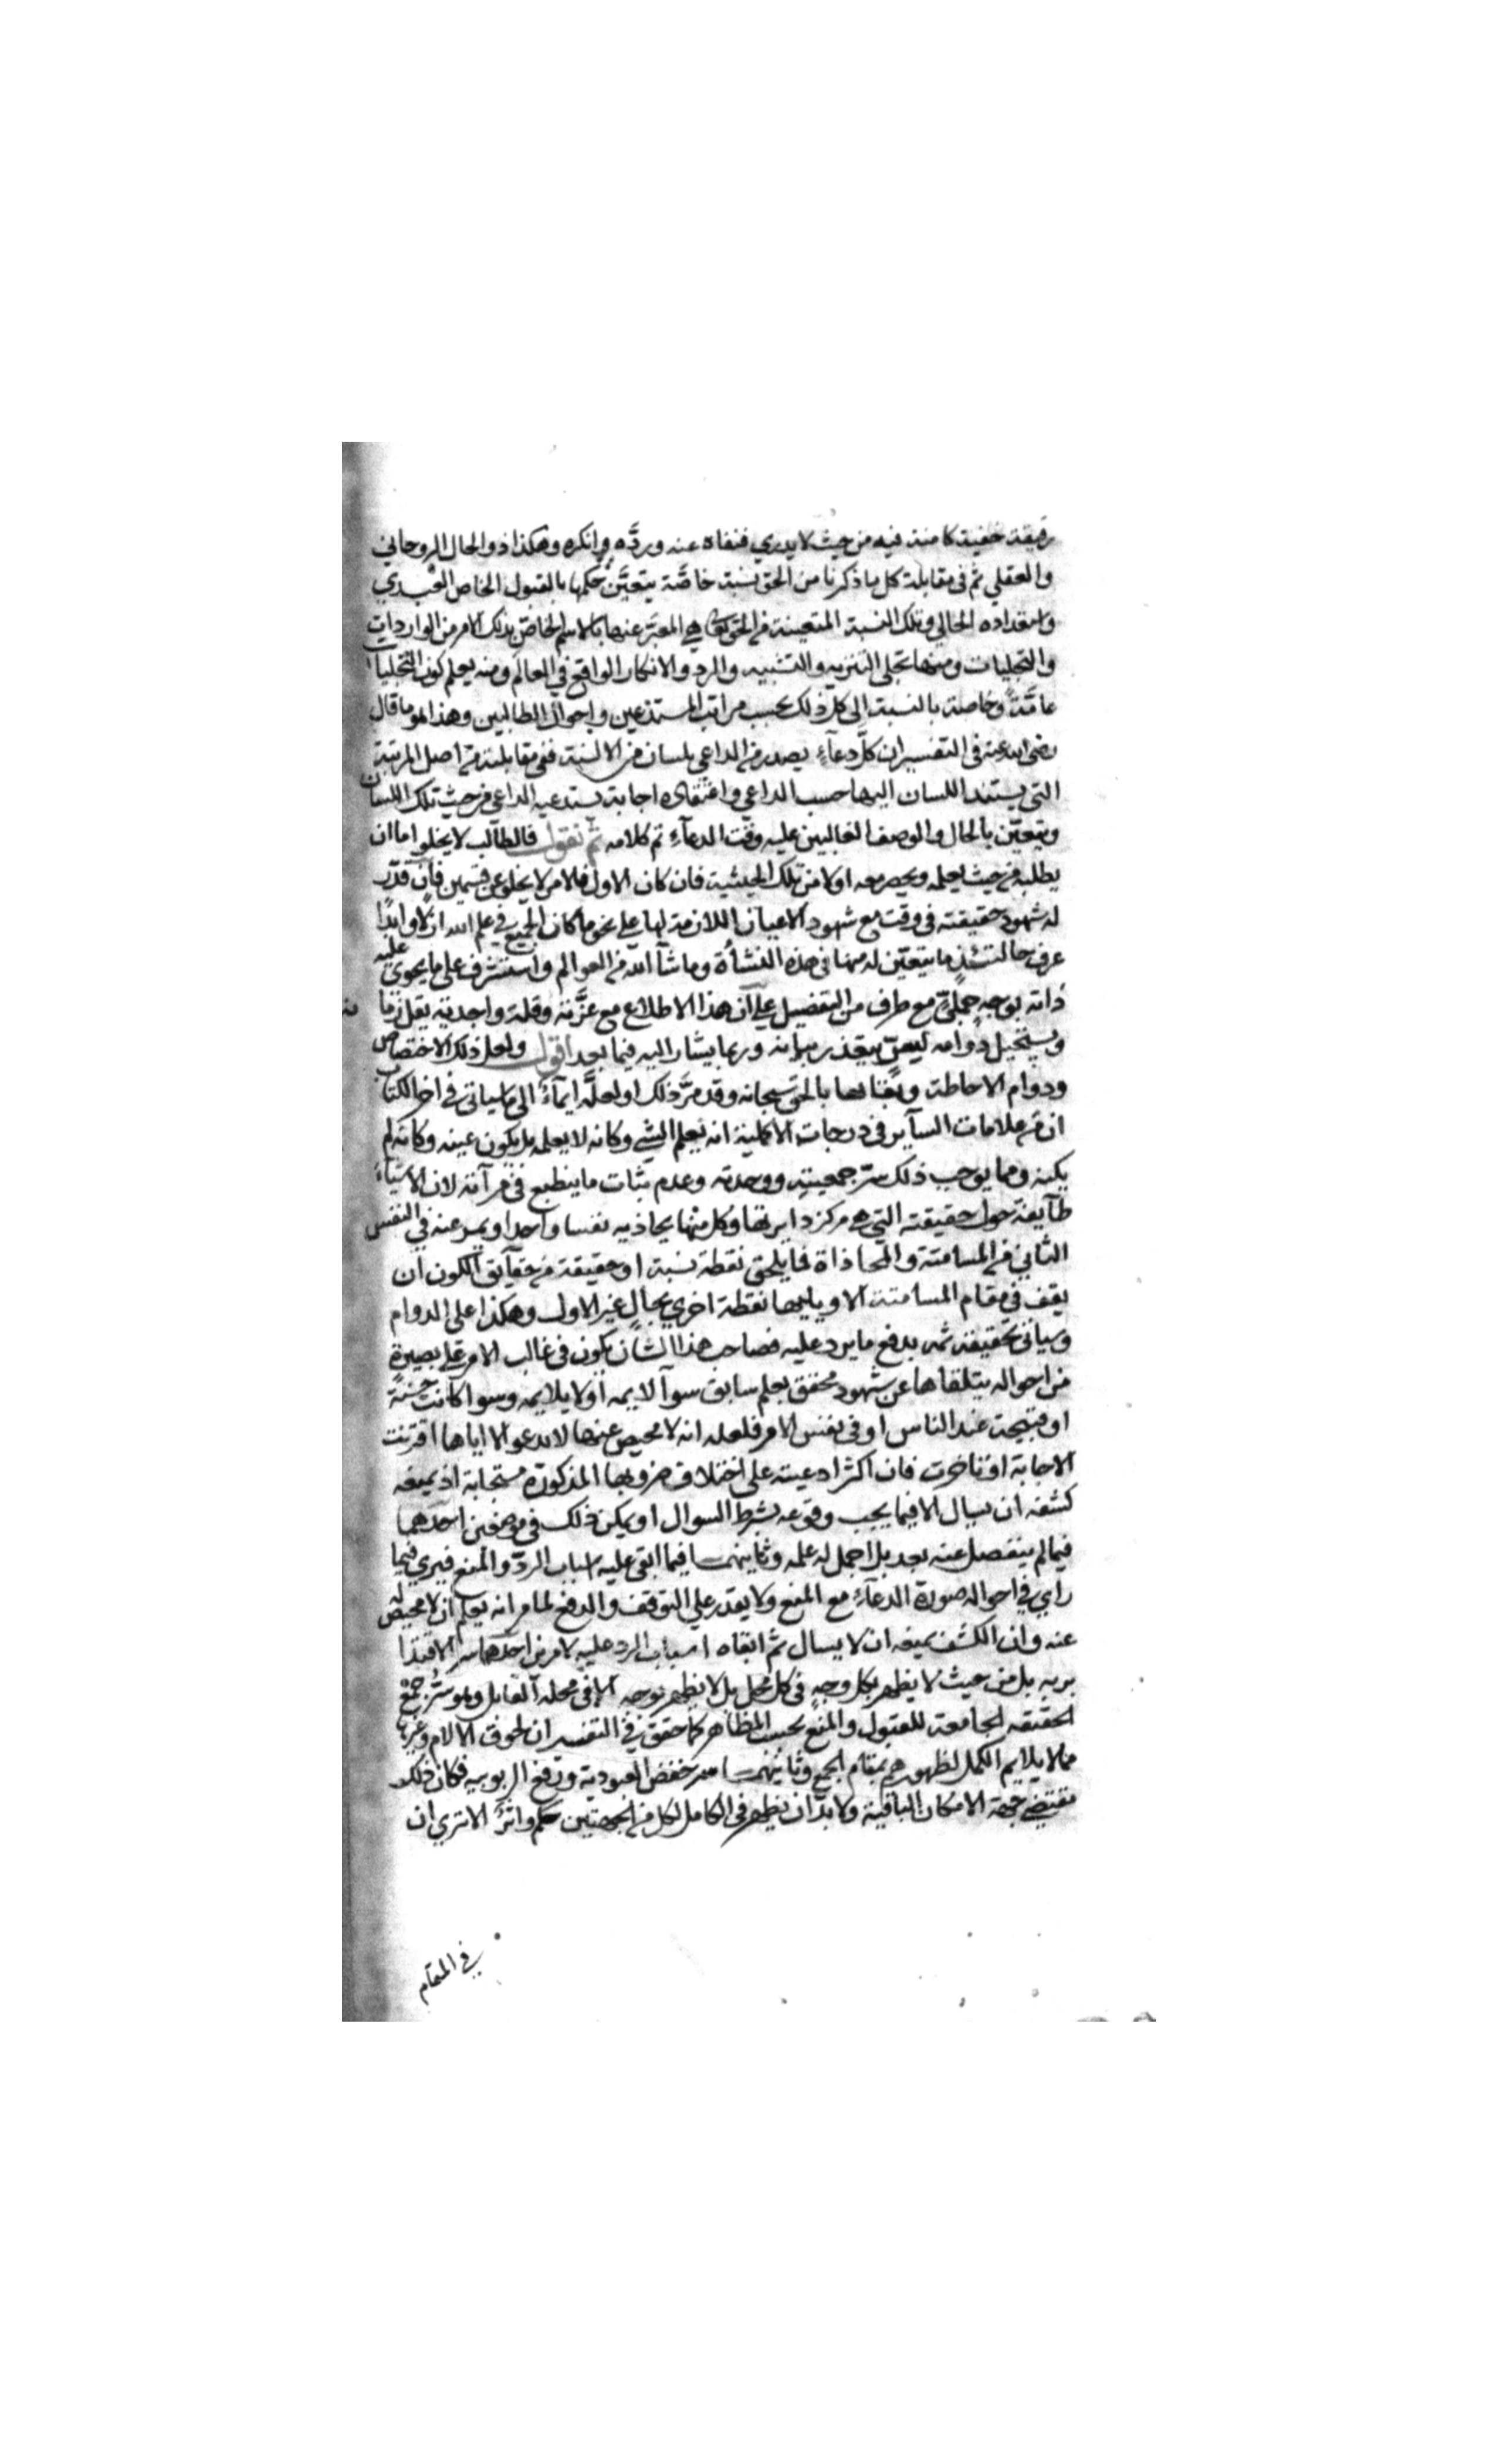 رقيقة خفية كامنة فيه من حيث لا يدري فنفاه عنه وردَّه وانكره وهكذا ذو الحال الروحاني
والعقلي ثم في مقابلة كل ما ذكرنا من الحق نسبة خاصَّة يتعيَّن حكمها بالقبول الخاص العبدي
وامقداده الحالي وتلك النسبة المتعينة من الحق تعالى هي المعبَّر عنها بالاسم الخاص بذلك الامر من الواردات
والتجليات ومنها تجلى التنزيه والتشبيه والرد والانكار الواقع في العالم ومنه يعلم كون التجليات
عامَّةً وخاصة بالنسبة الى كل ذلك بحسب مراتب المستدعين واحوال الطالبين وهذا هو ما قال
رضي الله عنه في التفسير ان كلَّ دعآءٍ يصدر من الداعي بلسان من الالسنة ففي مقابلته من اصل المرتبة
التي يستند اللسان اليها حسب الداعي واعتقاده اجابة يستدعيه الداعي من حيث تلك اللسان
ويتعيّن بالحال والوصف الغالبين عليه وقت الدعآءِ تم كلامه ثم نقول فالطالب لا يخلوا اما ان
يطلبه من حيث يعلمه ويحصره معه اولا من تلك الحيثية فان كان الاول فلامر لا يخلو عن قسمين فان قدّر
له شهود حقيقته في وقت مع شهود الاعيان اللازمة لها على نحو ما كان الجميع في علم الله ازلا وابدًا
عرف حالتئذٍ ما يتعيّن له منها في هذه النشأة وما شآ الله من العوالم واستشرف على ما يحوى عليه
ذاته بوجه جملىّ مع طرف من التفصيل على ان هذا الاطلاع مع عزَّته وقلة واجديه يقل زمانه
ويستحيل دوامه لسرّ يتعذر بيانه وربما يشار اليه فيما بعد اقول ولعل ذلك الاختصاص
ودوام الاحاطة وبقائها بالحق سبحانه وقد مرّ ذلك او لعلَّه ايمآءً الى ما سياتي في اخر الكتاب
ان من علامات السآير في درجات الاكملية انه يعلم الشي وكانه لا يعلمه بل يكون عينه وكانه لم
يكنه ومما يوجب ذلك سرّ جمعيته ووحدته وعدم ثبات ما ينطبع في مرآته لان الاشيآء
طآيفة حول حقيقته التي هي مركز دايرتها وكل منها يحاذيه نفسا واحدا ويمر عنه في النفس
الثاني من المسامتة والمحاذاة فما يلحق نقطة نسبة او حقيقة من حقآيق الكون ان
يقف في مقام المسامتة الا ويليها نقطة اخري بحال غير الاول وهكذا على الدوام
وسياتي تحقيقه ثمه بدفع ما يرد عليه فصاحب هذا الشان يكون في غالب الامر على بصيرة
من احواله يتلقاها عن شهود محقق بعلم سابق سوآ لايمه اولا يلايمه وسوا كانت حسنة
او قبيحة عند الناس او في نفس الامر فلعلمه انه لا محيص عنها لا يدعو الا اياها اقترنت
الاجابة او تاخرت فان اكثر ادعيته على اختلاف ضروبها المذكورة مستجابة اذ يمنعه
كشفه ان يسال الا فيما يجب وقوعه بشرط السوال او يمكن ذلك في موضعين احدهما
فيما لم ينفصل عنه بعد بل اجمل له علمه وثانيهما فيما ابقى عليه اسباب الردّ والمنع فيري فيما
راي في احواله صورة الدعآءِ مع المنع ولا يقدر علي التوقف والدفع لما مر انه يعلم ان لا محيص له
عنه وان الكشف يمنعه ان لا يسال ثم ابقاه اسباب الرد عليه لامرين احدهما سر الاقتدا
بربه بل من حيث لا يظهر بكل وجهٍ في كل محل بل لا يظهر بوجه الا في محله القابل وهو سرّ جمع
الحقيقه الجامعة للقبول والمنع بحسب المظاهر كما حقق في التفسير ان لحوق الالام وغيرها
مما لا يلايم الكمل لظهورهم بمقام الجمع وثانيهما سر خفض العبودية ورفع الربوبيه فكان ذلك
مقتضى جهة الامكان الباقية ولا بدّ ان يظهر في الكامل لكل من الجهتين حكم واثرٌ الا تري ان
في المقام